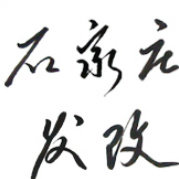 石家庄
发改